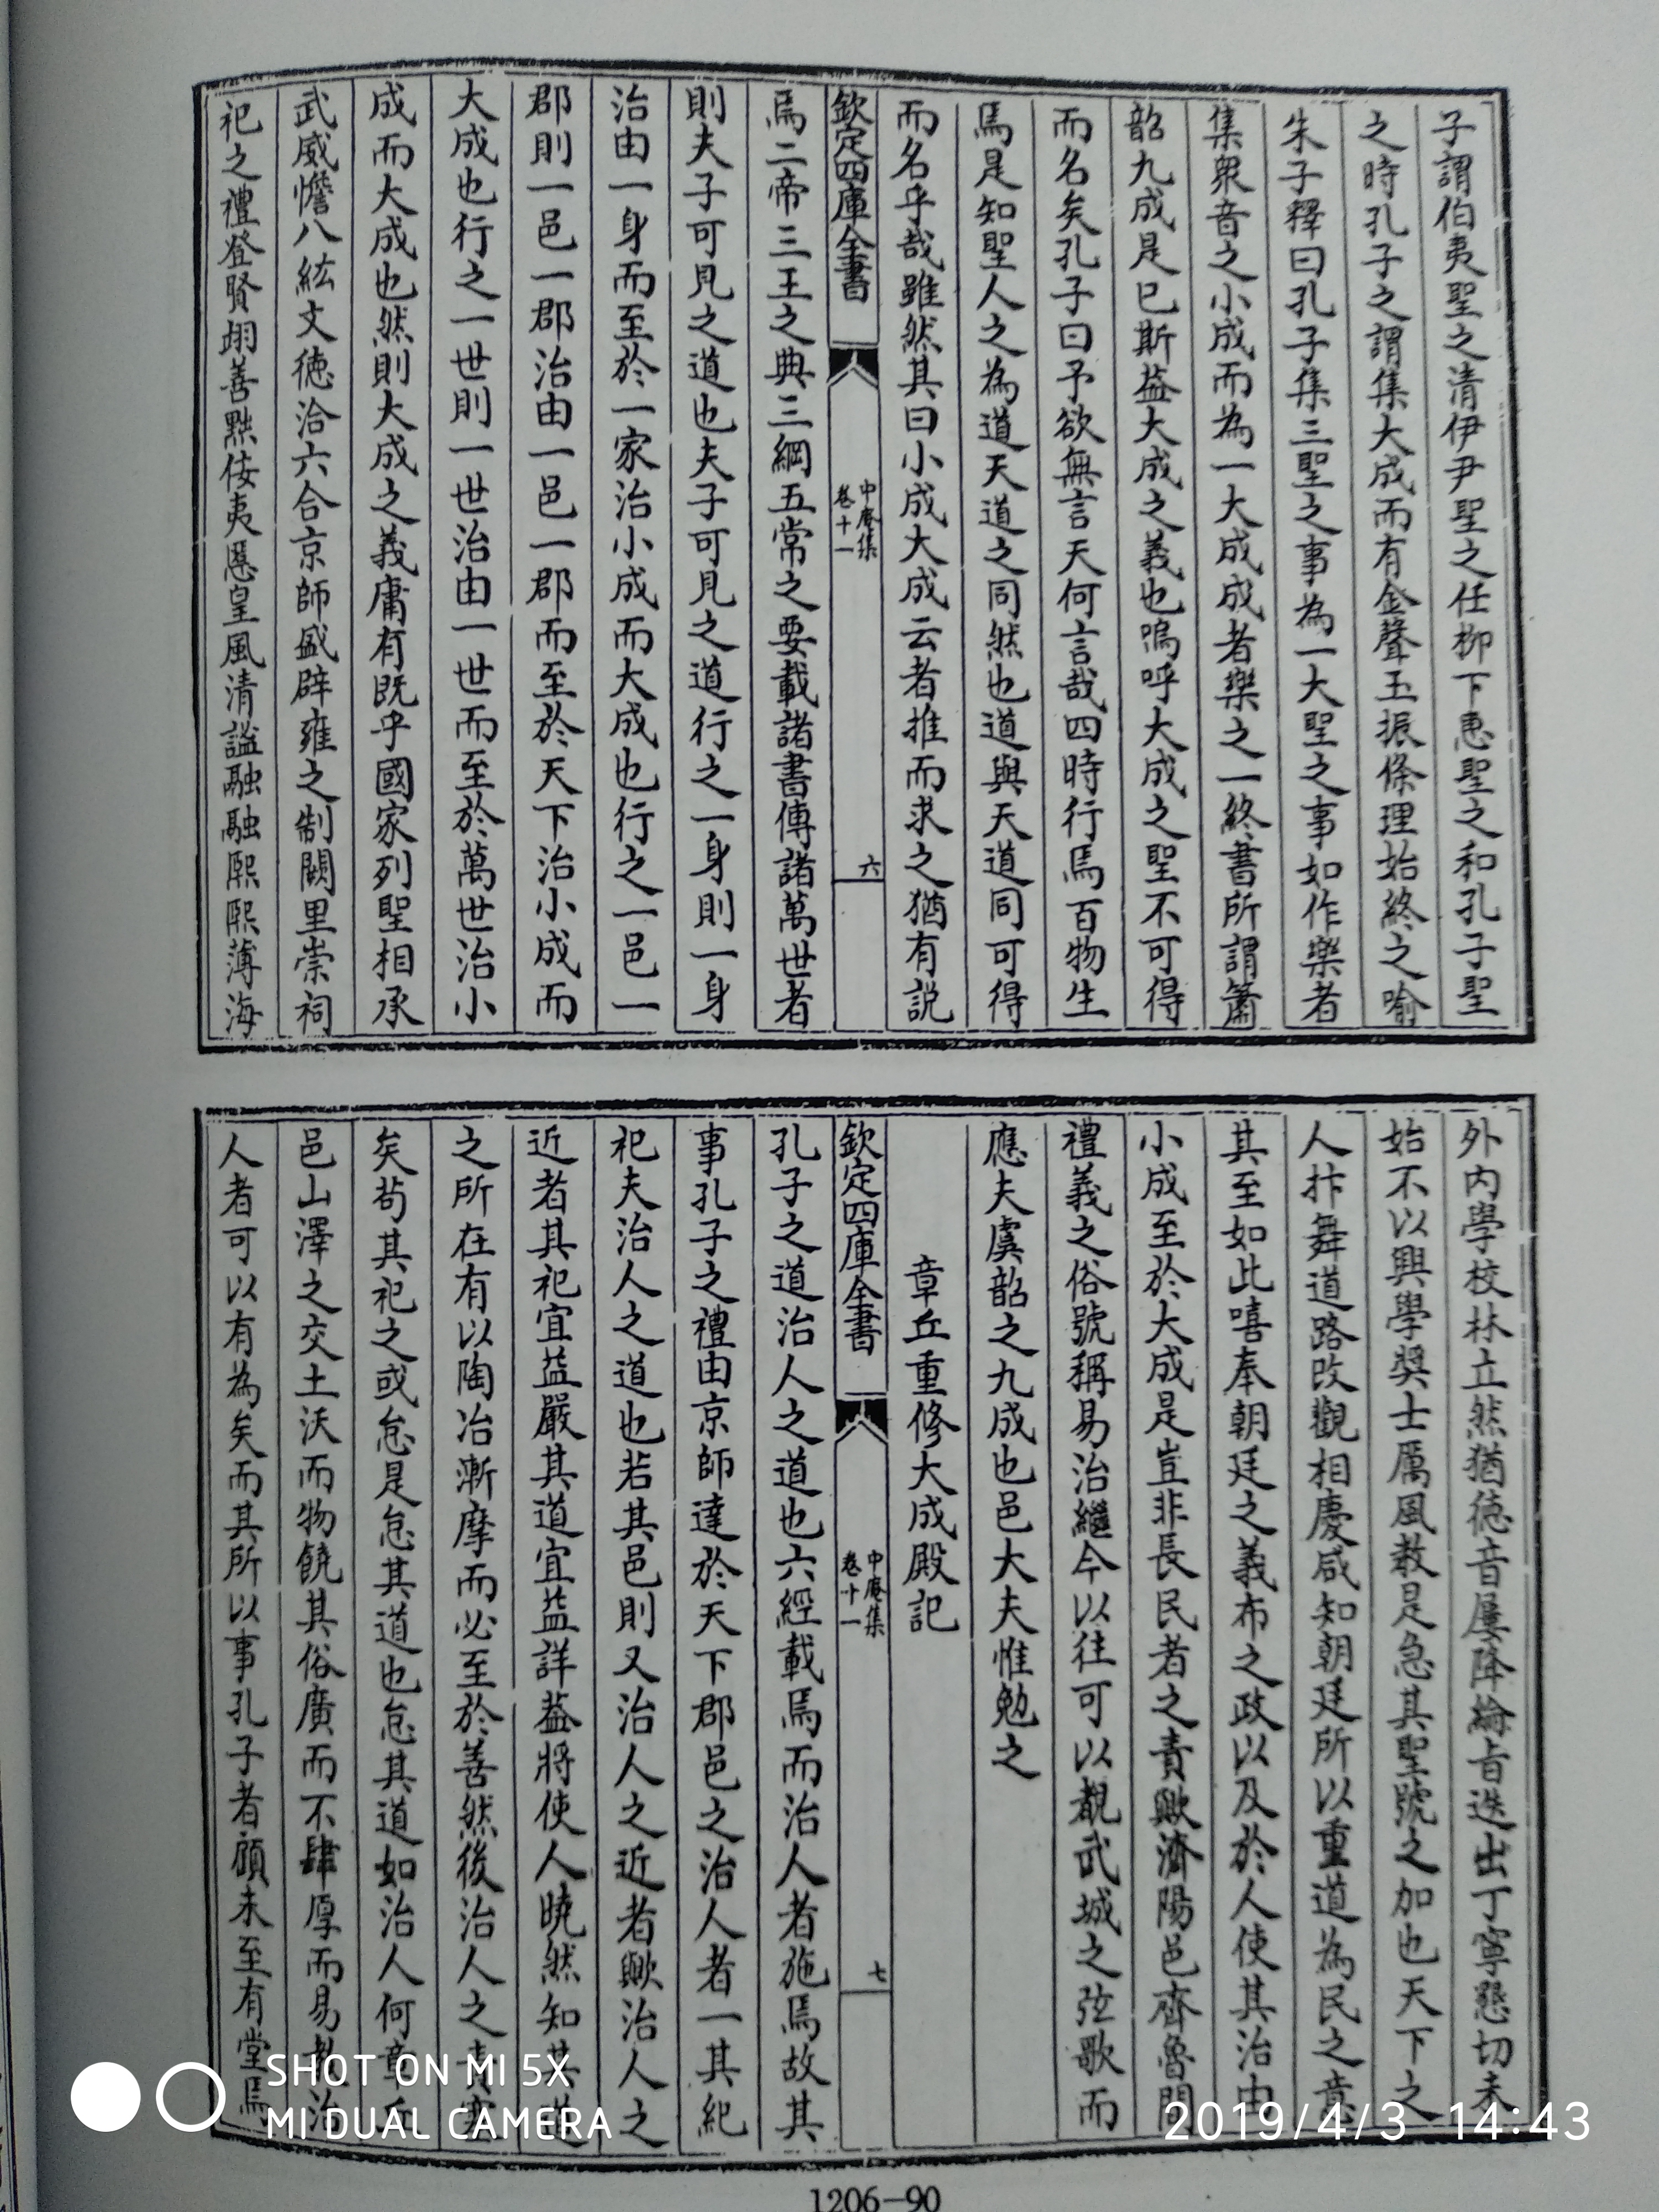 子謂伯夷聖之清伊尹聖之任栁下惠聖之和孔子聖
之時孔子之謂集大成而有金聲玉振條理始終之喻
朱子釋曰孔子集三聖之事為一大聖之事如作樂者
集衆音之小成而為一大成成者樂之一終書所謂簫
韶九成是巳斯葢大成之義也嗚呼大成之聖不可得
而名矣孔子曰予欲無言天何言哉四時行焉百物生
焉是知聖人之為道天道之同然也道與天道同可得
而名乎哉雖然其曰小成大成云者推而求之猶有説
欽定四庫全書
中庵集
卷十一
六
焉二帝三王之典三綱五常之要載諸書傳諸萬世者
則夫子可見之道也夫子可見之道行之一身則一身
治由一身而至於一家治小成而大成也行之一邑一
郡則一邑一郡治由一邑一郡而至於天下治小成而
大成也行之一世則一世治由一世而至於萬世治小
成而大成也然則大成之義庸有既乎國家列聖相承
武威憺八紘文徳洽六合京師盛辟雍之制闕里崇祠
祀之禮登賢翊善點侫夷慝皇風清謐融融熙熙薄海
外内學校林立然猶徳音屢降綸旨迭出丁寧懇切未
始不以興學奬士厲風教是急其聖號之加也天下之
人抃舞道路改觀相慶咸知朝廷所以重道為民之意
其至如此嘻奉朝廷之義布之政以及於人使其治由
小成至於大成是豈非長民者之責歟濟陽邑齊魯間
禮義之俗號稱易治繼今以往可以覩武城之弦歌而
應夫虞韶之九成也邑大夫惟勉之
章丘重修大成殿記
欽定四庫全書
中庵集
卷十一
七
孔子之道治人之道也六經載焉而治人者施焉故其
事孔子之禮由京師達於天下郡邑之治人者一其紀
祀夫治人之道也若其邑則又治人之近者歟治人之
近者其祀宜益嚴其道宜益詳葢將使人曉然知其道
之所在有以陶冶漸摩而必至於善然後治人之責塞
矣茍其祀之或怠是怠其道也怠其道如治人何章丘
邑山澤之交土沃而物饒其俗廣而不肆厚而易教治
人者可以有為矣而其所以事孔子者顧未至有堂焉
1206-90
SHOT ON MI 5X
MI DUAL CAMERA
2019/4/3 14:43